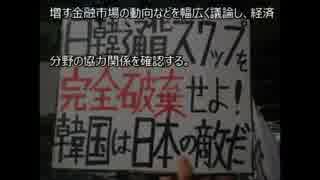 増す金融市場の動向などを幅広く議論し、経済
分野の協力関係を確認する。
日韓通貨スワップを
完全破棄せよ!
韓国は日本の敵だ